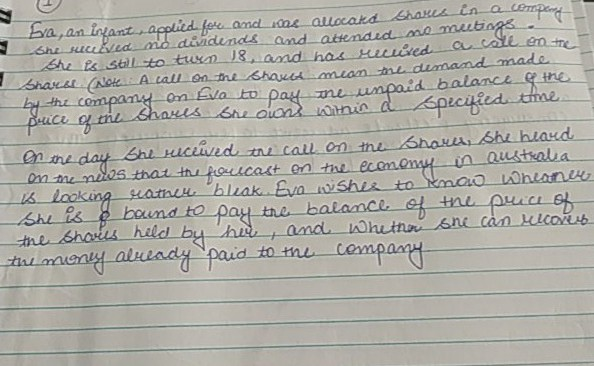 1
Eva, an infant, applied for and was allocated shares in a company
She received no dividends and attended no meetings.
She is still to turn 18, and has received a call on the
shares (Note: A call on the shares mean the demand made
by the company on Eva to pay the unpaid balance of the
price of the shares she owns within a specified time
On the day she received the call on the shares, she heard
on the news that the forecast on the economy in australia
is looking rather bleak. Eva wishes to know whether
she is bound to pay the balance of the price of
the shares held by her, and whether she can recover
the money already paid to the company